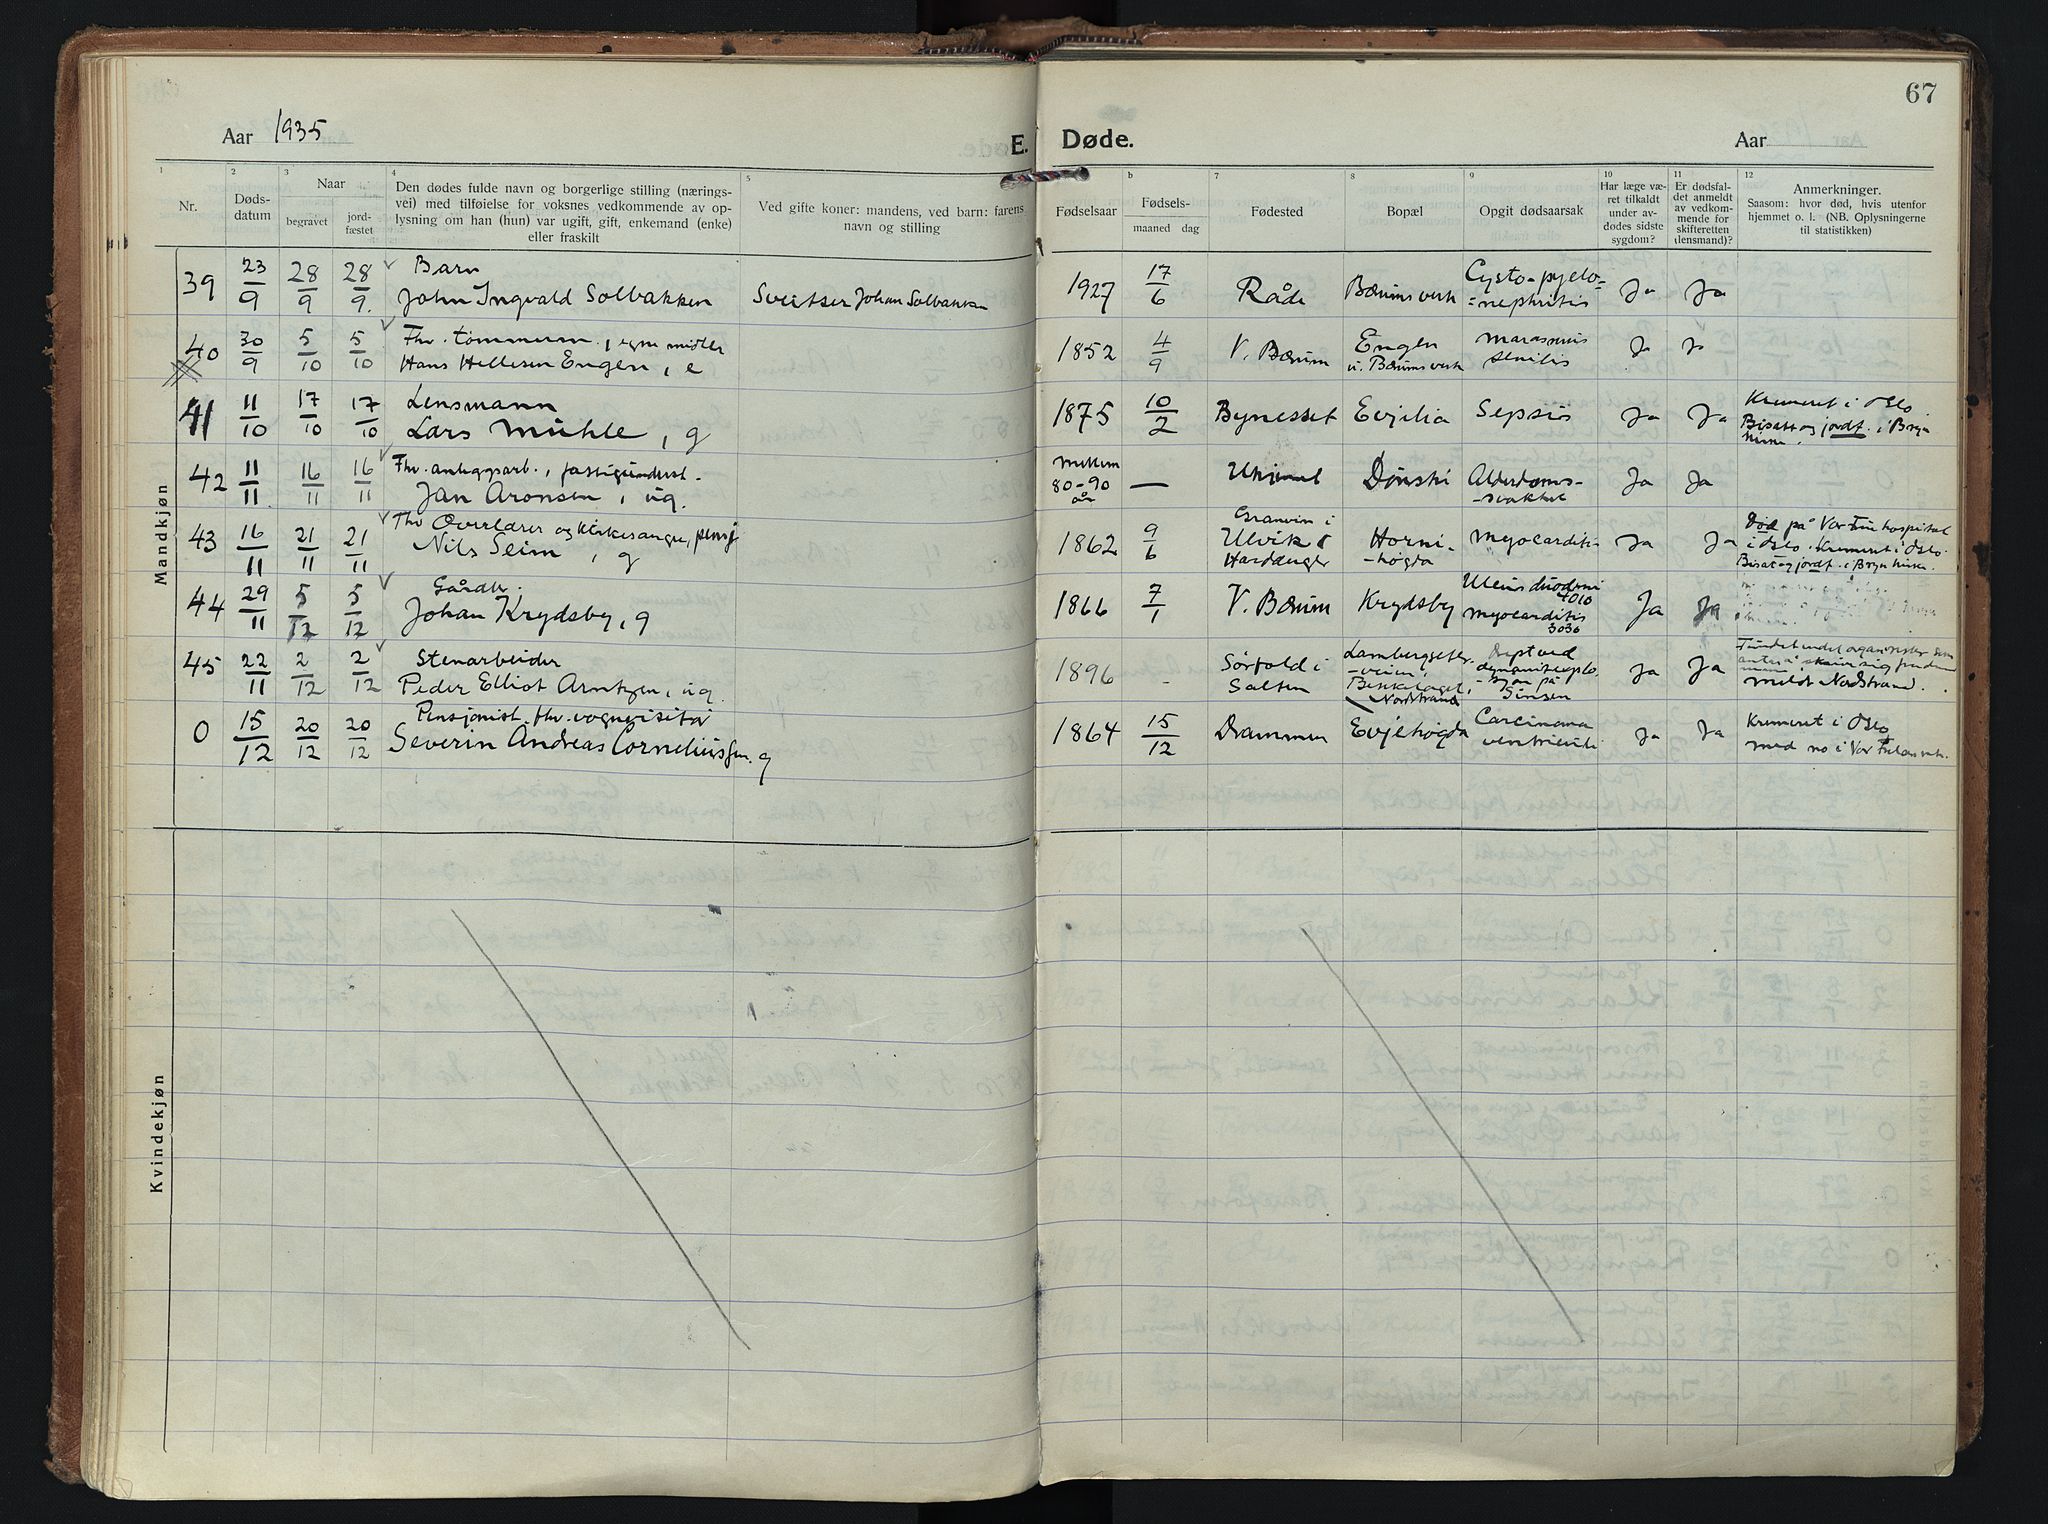 67
Aar 1935
E. Døde.
Aar
1 2 3 4 5 b 7 8 9 10 11 12
Nr.
Døds-
datum
Naar
begravet
jord-
fæstet
Den dødes fulde navn og borgerlige stilling (nærings-
vei) med tilføielse for voksnes vedkommende av op-
lysning om han (hun) var ugift, gift, enkemand (enke)
eller fraskilt
Ved gifte koner: mandens, ved barn: farens
navn og stilling
Fødselsaar
Fødsels-
maaned dag
Fødested
Bopæl
Opgit dødsaarsak
Har læge væ-
ret tilkaldt
under av-
dødes sidste
sygdom?
Er dødsfal-
det anmeldt
av vedkom-
mende for
skifteretten
(lensmand)?
Anmerkninger.
Saasom: hvor død, hvis utenfor
hjemmet o. l. (NB. Oplysningerne
til statistikken)
Mandkjøn
39 23/9 28/9 28/9. Barn
John Ingvald Solbakken Sveitser Johan Solbakken 1927 17/6 Råde Bærums verk Cysto-pyelo-
-nephritis Ja Ja
40 30/9 5/10 5/10 Fhv. tømmerm., egne midler
Hans Hellesen Engen, e 1852 4/9 V. Bærum Engen
u. Bærums verk marasmus
senilis Ja Ja
41 11/10 17/10 17/10 Lensmann
Lars Mühle, g 1875 10/2 Bynesset Evjilia Sepsis Ja Ja Kremeret i Oslo
Bisatt og jordf. i Bryn
kirke.
42 11/11 16/11 16/11 Fhv. anleggsarb., fattigunderst.
Jan Aronsen, ug. mellem
80-90
år — Ukjent Dønski Alderdoms-
-svakhet Ja Ja
43 16/11 21/11 21/11 Fhv Overlærer og kirkesanger, pensj
Nils Seim, g 1862 9/6 Granvin i
Ulvik
Hardanger Horni-
-høgda myocarditi- Ja Ja Død på Vor Frue hospital
i Oslo. Kremert i Oslo.
Bisat og jordf. i Bryn kirke.
44 29/11 5/12 5/12 Gårdbr.
Johan Krydsby, g 1866 7/1 V. Bærum Krydsby Ulcus duodeni
myocarditis Ja Ja
45 22/11 2/12 2/12 Stenarbeider
Peder Elliot Arntzen, ug. 1896 - Sørfold i
Salten Lambergseter-
-veien,
Bekkelaget,
Nordstrand Drept ved
dynamiteksplo-
-sjon på
Sinsen Ja Ja meldt Nordstrand.
0 15/12 20/12 20/12 Pensjonist. fhv. vognvisitør
Severin Andreas Corneliussen. g 1864 15/12 Drammen Evjehøgda Carcinoma
ventriculi Ja Ja Kremeret i Oslo
Kvindekjøn